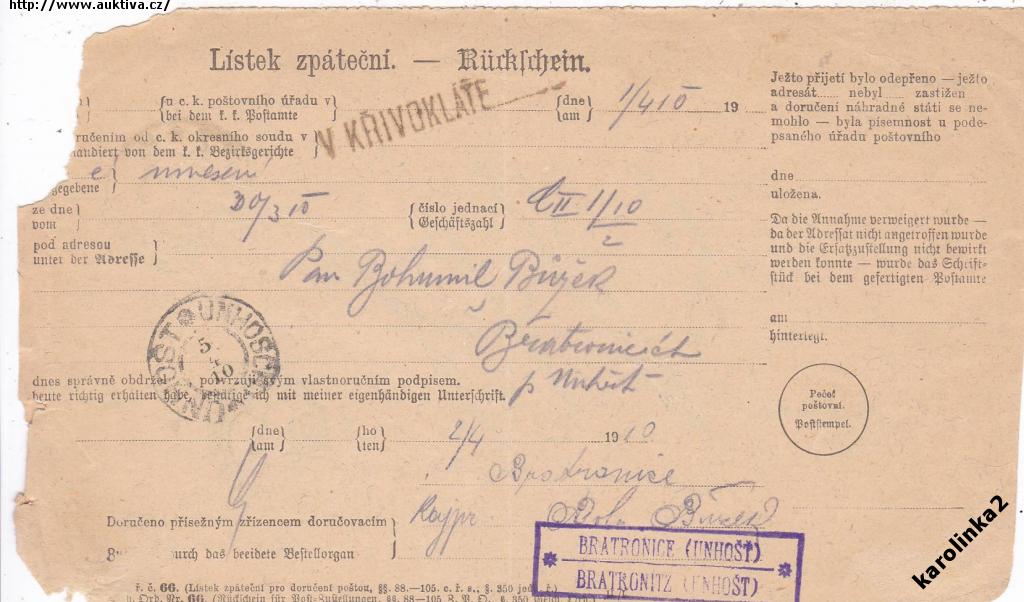 http://www.auktiva.cz/
Lístek zpáteční. — Rückschein.
u c. k. poštovního úřadu v
bei dem k. k. Postamte
V KŘIVOKLÁTĚ
dne
am
1/4 10 19
ručením od c. k. okresního soudu v
mandiert von dem k. k. Bezirksgerichte
é
gegebene
ze dne
vom
30/3 10
číslo jednací
Geschäftszahl
1/10
pod adresou
unter der Adresse
Pan Bohumil Bůžek
v
Bratronicích
p Unhošť
UNHOŠŤ UNHOSCHT
5
10
dnes správně obdržel potvrzuji svým vlastnoručním podpisem.
heute richtig erhalten habe, bestätige ich mit meiner eigenhändigen Unterschrift.
dne
am
ho
ten
2/4 1910
Bratronice
Doručeno přísežným zřízencem doručovacím
durch das beeidete Bestellorgan
Boh. Bůžek
BRATRONICE (UNHOŠŤ)
BRATRONITZ (UNHOŠŤ)
ř. č. 66. (Lístek zpáteční pro doručení poštou, §§. 88.—105. c. ř. s., §. 350 jed. ř.)
Ord. Nr. 66. (Rückschein für Post-Zustellungen, §§. 88—105 Z. P. O., §. 350
Ježto přijetí bylo odepřeno — ježto
adresát nebyl zastižen
a doručení náhradné státi se ne-
mohlo — byla písemnost u pode-
psaného úřadu poštovního
dne
uložena.
Da die Annahme verweigert wurde —
da der Adressat nicht angetroffen wurde
und die Ersatzzustellung nicht bewirkt
werden konnte — wurde das Schrift-
stück bei dem gefertigten Postamte
am
hinterlegt.
Pečeť
poštovní.
Poststempel.
karolinka2